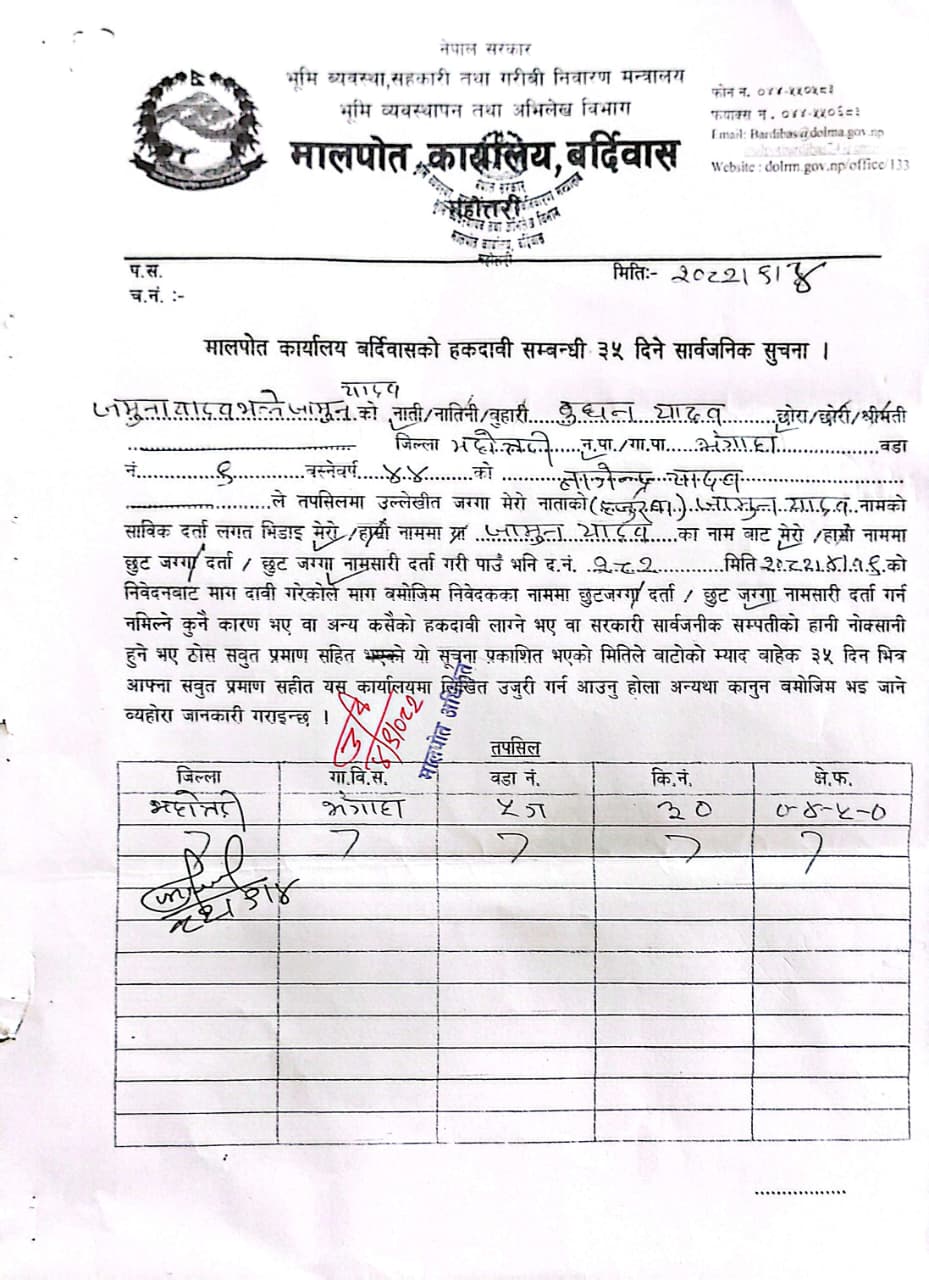 नेपाल सरकार
भूमि व्यवस्था,सहकारी तथा गरीबी निवारण मन्त्रालय
भूमि व्यवस्थापन तथा अभिलेख विभाग
मालपोत कार्यालय, बर्दिवास
महोत्तरी
फोन न. ०४४-५५०५८३
फयाक्स न. ०४४-५५०६८३
Email: Bardibas@dolma.gov.np
Website : dolrm.gov.np/office/133
प.स.
च.नं. :-
मितिः- २०८२।६।४
मालपोत कार्यालय बर्दिवासको हकदावी सम्बन्धी ३५ दिने सार्वजनिक सुचना ।
यादव
जमुना यादव भन्ने जामुन को नाती/नातिनी/बुहारी बुधन यादव छोरा/छोरी/श्रीमती
जिल्ला महोत्तरी न.पा./गा.पा. भंगाहा वडा
नं. ६ वस्नेवर्ष ४४ को नागेन्द्र यादव
ले तपसिलमा उल्लेखीत जग्गा मेरो नाताको (हजुरबा) जामुन यादव नामको
साविक दर्ता लगत भिडाइ मेरो /हाम्रो नाममा श्री जामुन यादव का नाम बाट मेरो /हाम्रो नाममा
छुट जग्गा दर्ता / छुट जग्गा नामसारी दर्ता गरी पाउँ भनि द.नं. २८२ मिति २०८२।४।१६ को
निवेदनबाट माग दावी गरेकोले माग बमोजिम निवेदकका नाममा छुटजग्गा दर्ता / छुट जग्गा नामसारी दर्ता गर्न
नमिल्ने कुनै कारण भए वा अन्य कसैको हकदावी लाग्ने भए वा सरकारी सार्वजनीक सम्पतीको हानी नोक्सानी
हुने भए ठोस सवुत प्रमाण सहित भएको यो सूचना प्रकाशित भएको मितिले वाटोको म्याद वाहेक ३५ दिन भित्र
आफ्ना सवुत प्रमाण सहीत यस कार्यालयमा लिखित उजुरी गर्न आउनु होला अन्यथा कानुन वमोजिम भइ जाने
व्यहोरा जानकारी गराइन्छ ।
मालपोत अधिकृत
तपसिल
जिल्ला गा.वि.स. वडा नं. कि.नं. क्षे.फ.
महोत्तरी भंगाहा ५ज ३० ०-४-५-०